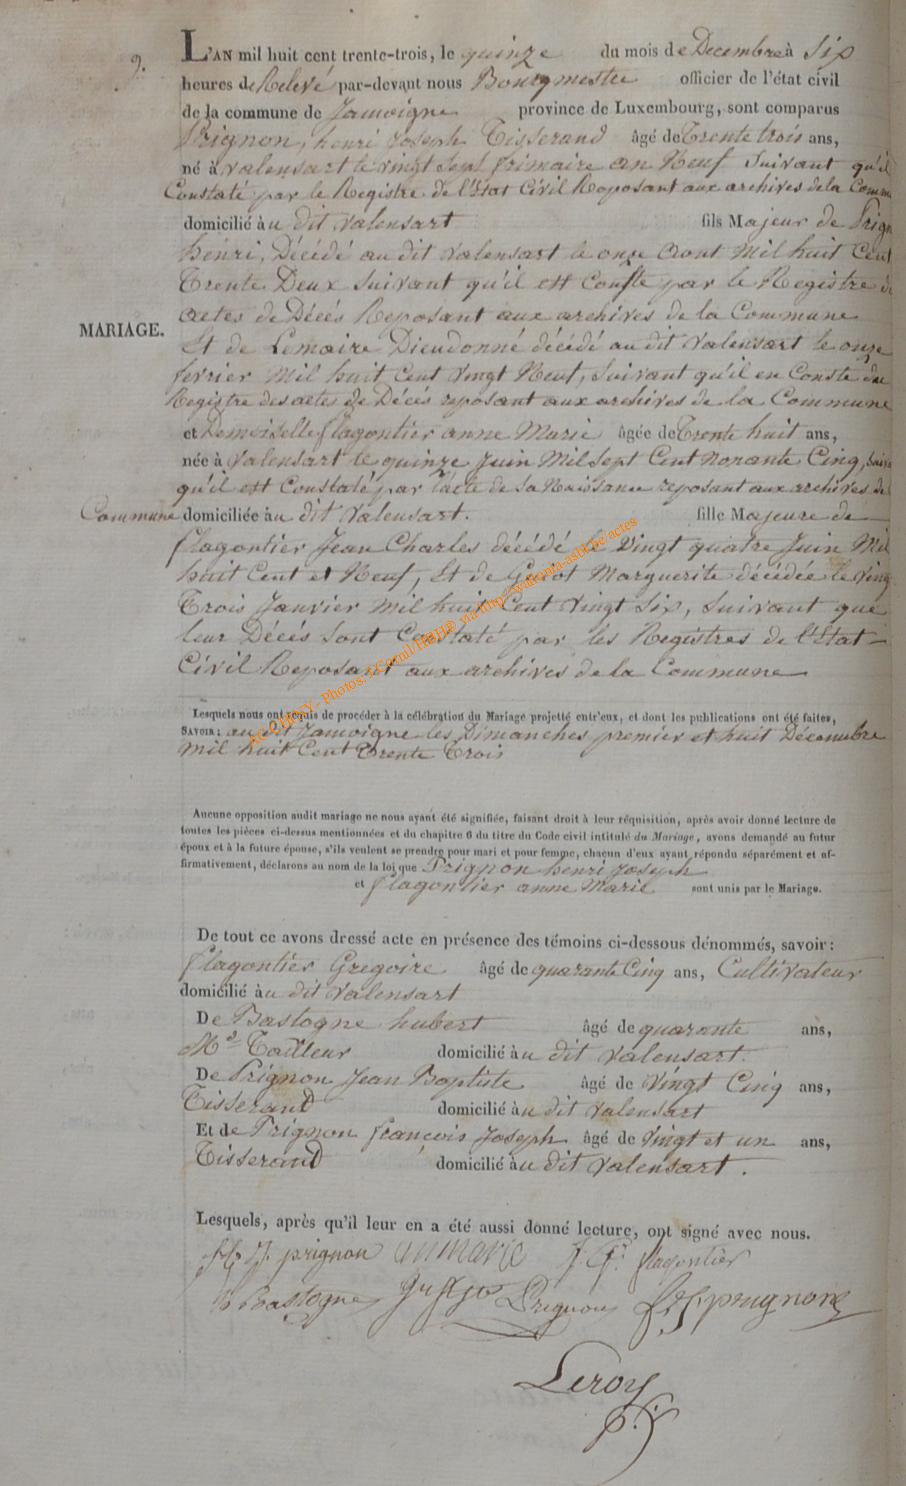 9.
L'AN mil huit cent trente-trois, le quinze du mois de Decembre à Six
heures de Relevé par-devant nous Bourgmestre officier de l'état civil
de la commune de Jamoigne province de Luxembourg, sont comparus
Prignon, henri Joseph Tisserand âgé de Trente trois ans,
né à Valensart le vingt Sept frimaire an Neuf Suivant qu'il
Constaté par le Registre de l'Etat Civil Reposant aux archives de la Comm
domicilié à u dit Valensart fils Majeur de Prign
henri, Décédé au dit Valensart le onze Aout Mil huit Cent
Trente Deux Suivant qu'il est Conste par le Registre de
actes de Décés Reposant aux archives de la Commune
MARIAGE.
Et de Lemaire Dieudonné décédé au dit Valensart le onze
fevrier Mil huit Cent Vingt Neuf, Suivant qu'il en Conste du
Registre des actes de Décés reposant aux archives de la Commune
et Demoiselle flagontier anne Marie âgée de Trente huit ans,
née à Valensart le quinze Juin Mil Sept Cent Nonante Cinq,
qu'il est Constaté par l'acte de Sa Naissance reposant aux archives de
Commune domiciliée à u dit Valensart. fille Majeure de
flagontier Jean Charles décédé le Vingt quatre Juin Mil
huit Cent et Neuf, Et de Marguerite décédée le Ving
Trois Janvier Mil huit Cent Vingt Six, Suivant que
leur Décés Sont Constaté par les Registres de l'Etat
Civil Reposant aux archives de la Commune
AC CHINY - Photos: J.Cornil/HBH® via http://watronia-asbl.be/actes
Lesquels nous ont requis de procéder à la célébration du Mariage projetté entr'eux, et dont les publications ont été faites,
SAVOIR: au dit Jamoigne les Dimanches premier et huit Décembre
Mil huit Cent Trente Trois
Aucune opposition audit mariage ne nous ayant été signifiée, faisant droit à leur réquisition, après avoir donné lecture de
toutes les pièces ci-dessus mentionnées et du chapitre 6 du titre du Code civil intitulé du Mariage, avons demandé au futur
époux et à la future épouse, s'ils veulent se prendre pour mari et pour femme, chacun d'eux ayant répondu séparément et af-
firmativement, déclarons au nom de la loi que Prignon henri Joseph
et flagontier anne Marie sont unis par le Mariage.
De tout ce avons dressé acte en présence des témoins ci-dessous dénommés, savoir:
flagontier Gregoire âgé de quarante Cinq ans, Cultivateur
domicilié à u dit Valensart
De Bastogne hubert âgé de quarante ans,
Md Tailleur domicilié à u dit Valensart.
De Prignon Jean Baptiste âgé de Vingt Cinq ans,
Tisserand domicilié à u dit Valensart
Et de Prignon françois Joseph âgé de Vingt et un ans,
Tisserand domicilié à u dit Valensart.
Lesquels, après qu'il leur en a été aussi donné lecture, ont signé avec nous.
h. J. prignon anmarie flagontier
h Bastogne Prignon
Leroy